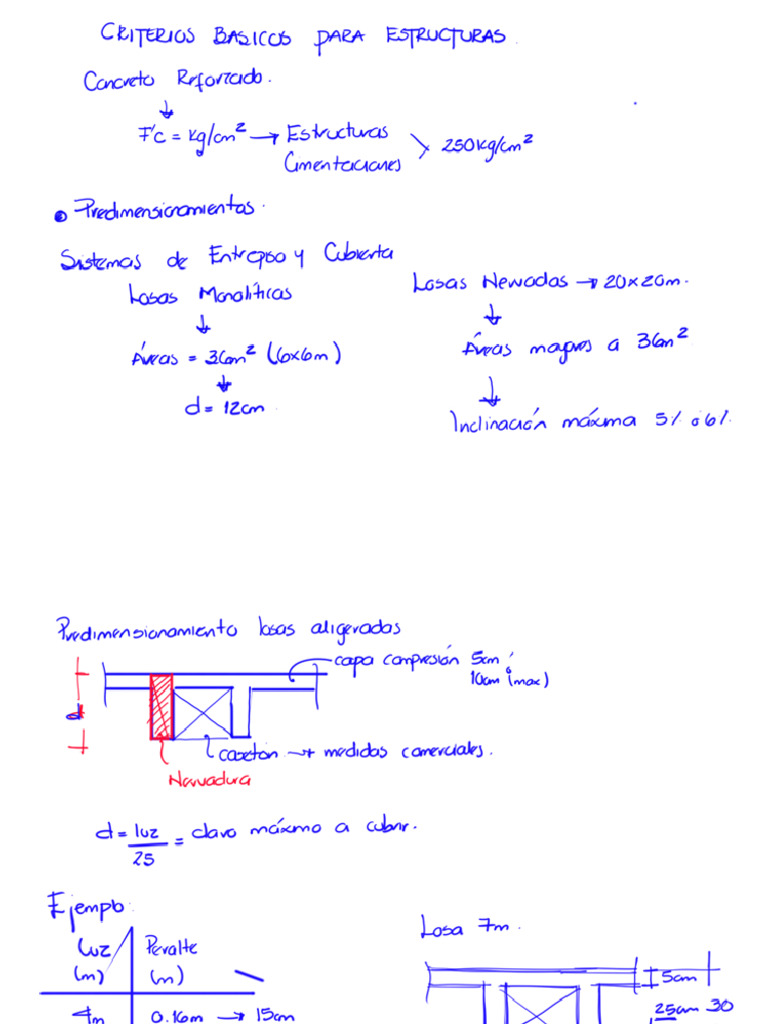 CRITERIOS BASICOS PARA ESTRUCTURAS.
Concreto Reforzado.
F'c = kg/cm² → Estructuras
Cimentaciones
250kg/cm²
• Predimensionamientos.
Sistemas de Entrepiso y Cubierta
Losas Monolíticas
Áreas = 36m² (6x6m)
d = 12cm
Losas Nervadas → 20x20m.
Áreas mayores a 36m²
Inclinación máxima 5% ó 6%
Predimensionamiento losas aligeradas
capa compresión 5cm ó
10cm (max)
d
casetón → medidas comerciales.
Nervadura
d = luz/25 = claro máximo a cubrir.
Ejemplo:
Luz (m) | Peralte (m)
4m | 0.16m → 15cm
Losa 7m.
5cm
25cm 30